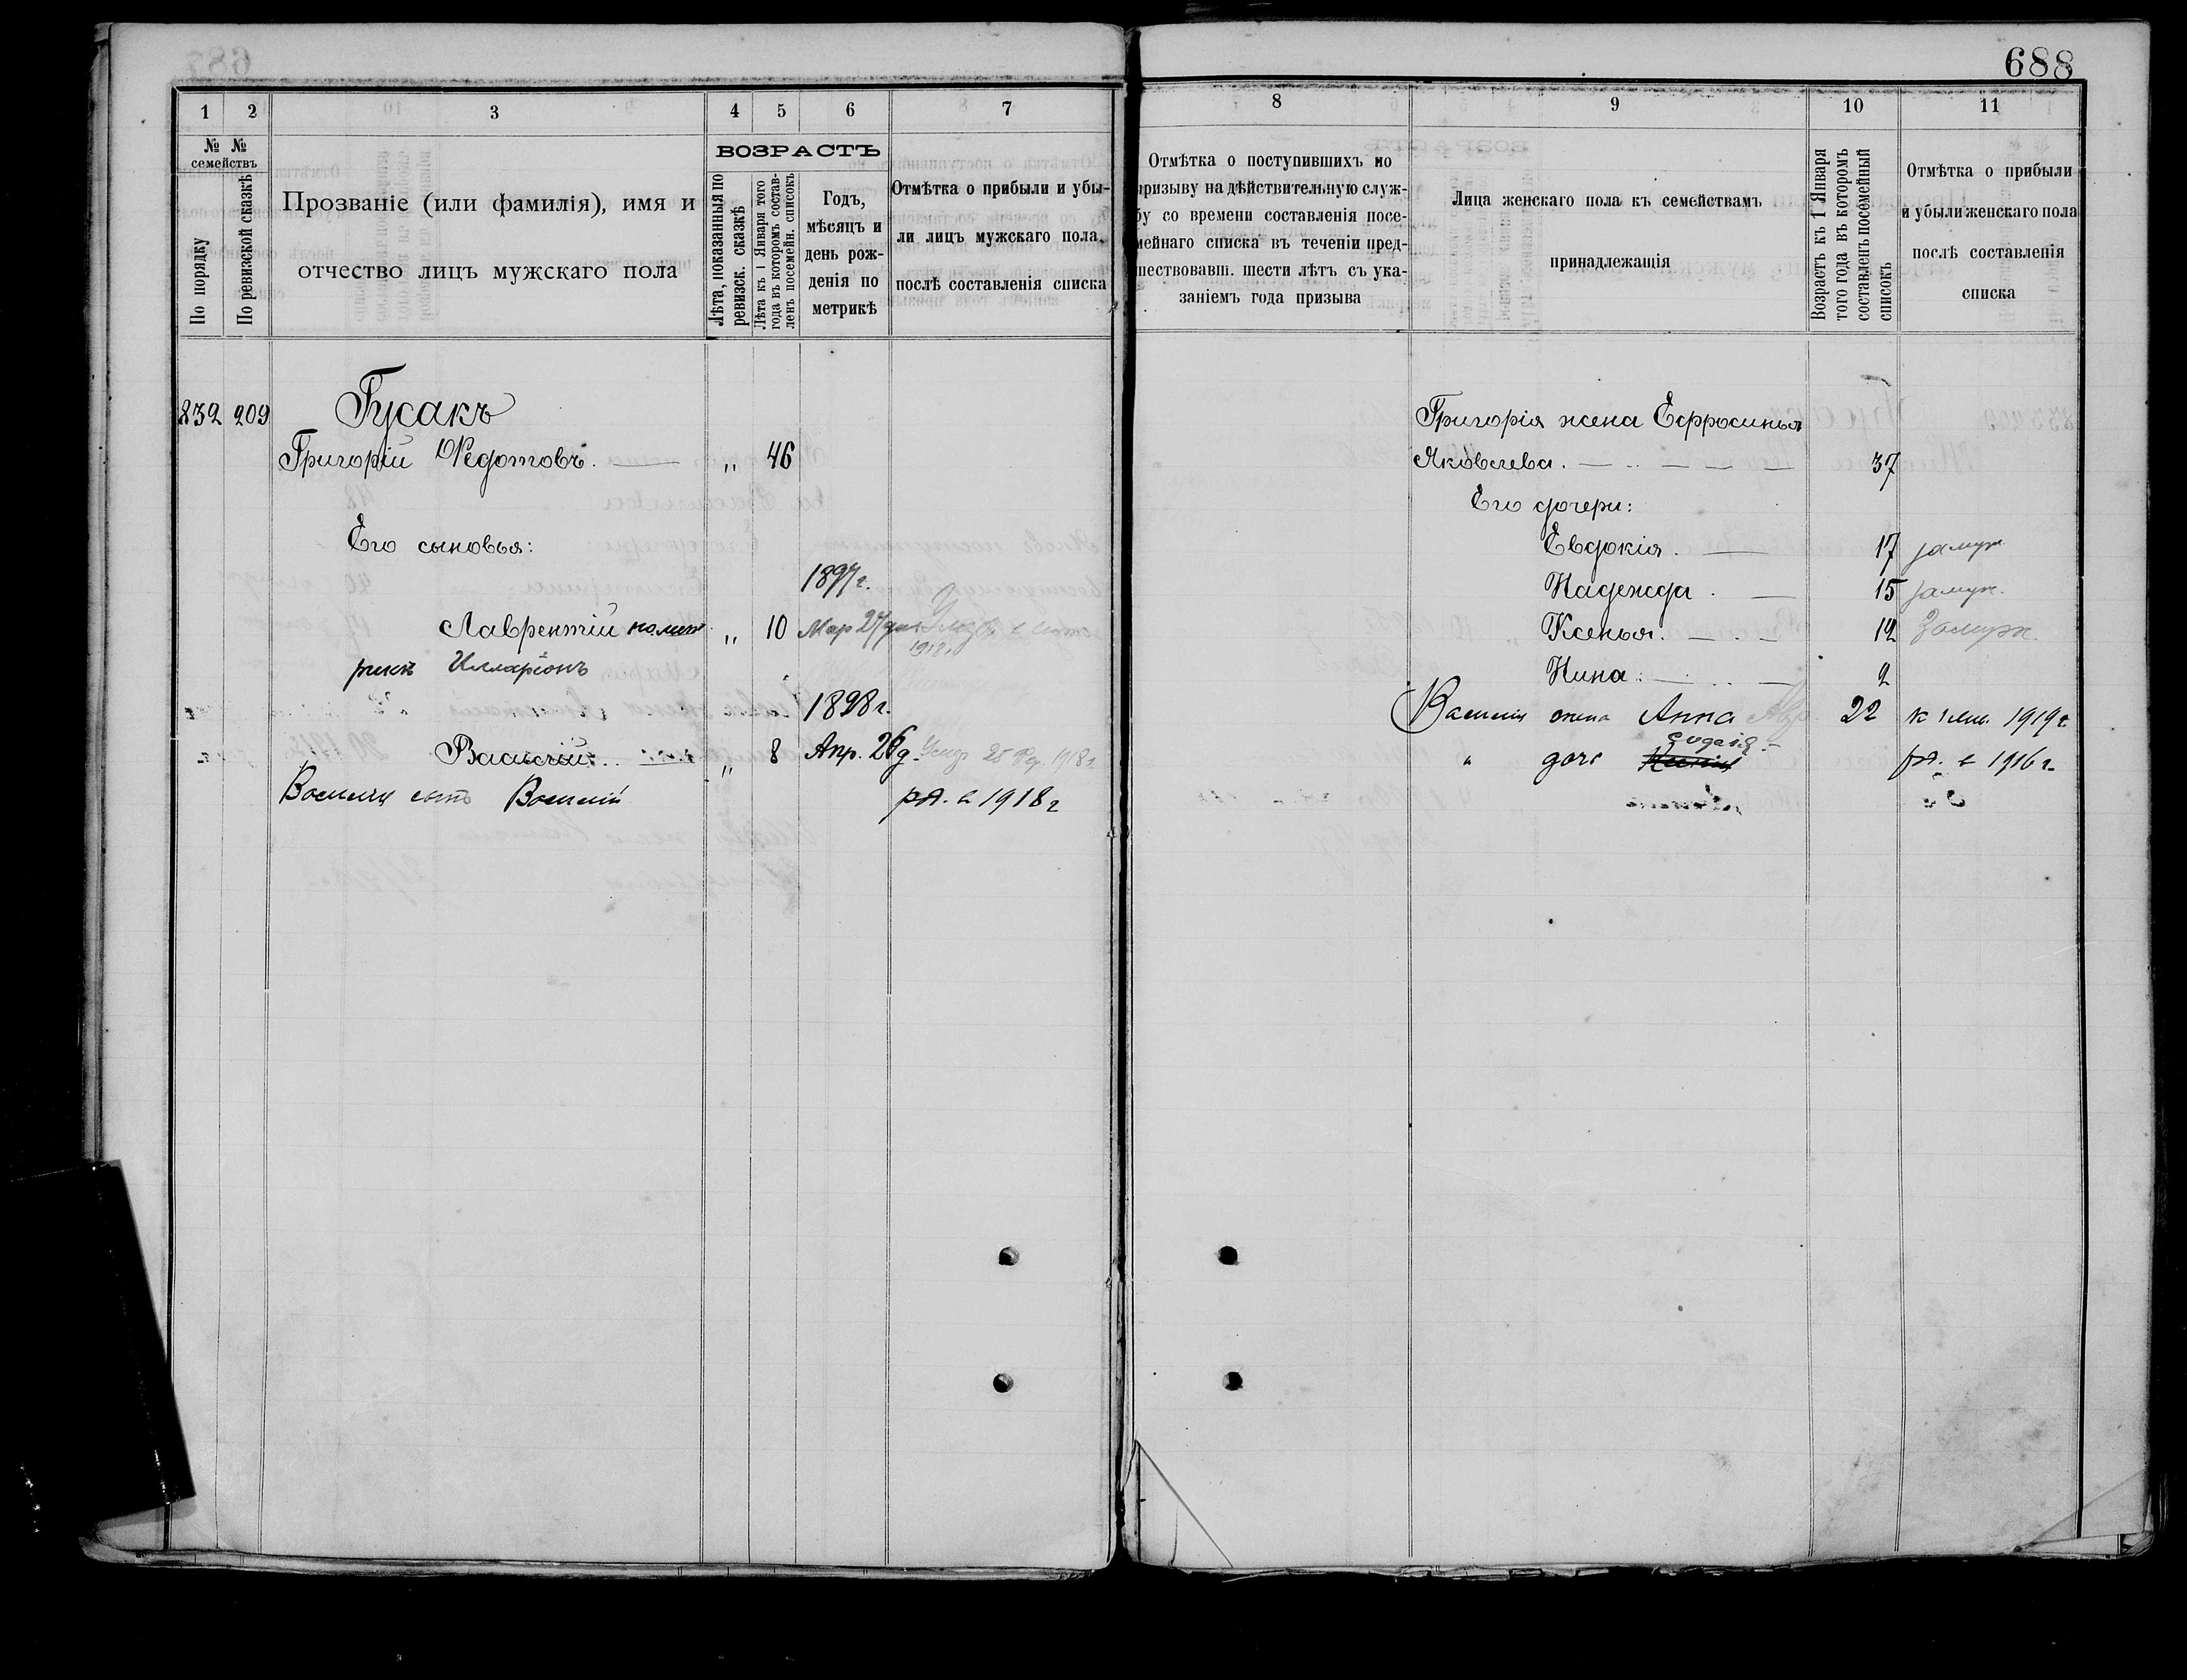 688
1 2 3 4 5 6 7
№ №
семействъ
По порядку
По ревизской сказкѣ
Прозваніе (или фамилія), имя и
отчество лицъ мужскаго пола
ВОЗРАСТЪ
Лѣта, показанныя по
ревизск. сказкѣ
Лѣта къ 1 Января того
года въ которомъ состав-
ленъ посемейн. списокъ
Годъ,
мѣсяцъ и
день рож-
денія по
метрикѣ
Отмѣтка о прибыли и убы-
ли лицъ мужскаго пола,
послѣ составленія списка
832 209 Гусакъ
Григорій Федотовъ. „ 46
Его сыновья:
1897 г.
Лаврентій по мет „ 10 Мар 24 дня
рикѣ Илларіонъ 1918 г.
1898 г.
Василій. „ 8 Апр. 26 д. 25 1918 г.
Василія сынъ Василій рж. в 1918 г
8 9 10 11
Отмѣтка о поступившихъ по
призыву на дѣйствительную служ-
бу со времени составленія посе-
мейнаго списка въ теченіи пред-
шествовавш. шести лѣтъ съ ука-
заніемъ года призыва
Лица женскаго пола къ семействамъ
принадлежащія
Возрастъ къ 1 Января
того года въ которомъ
составленъ посемейный
списокъ
Отмѣтка о прибыли
и убыли женскаго пола
послѣ составленія
списка
Григорія жена Ефросинья
Яковлева. 37
Его дочери:
Евдокія. 17 замуж.
Надежда. 15 замуж.
Ксенья. 12 Замуж.
Нина. 2
Василія жена Анна 22 к 1 янв. 1919 г.
„ дочь рж. в 1916 г.